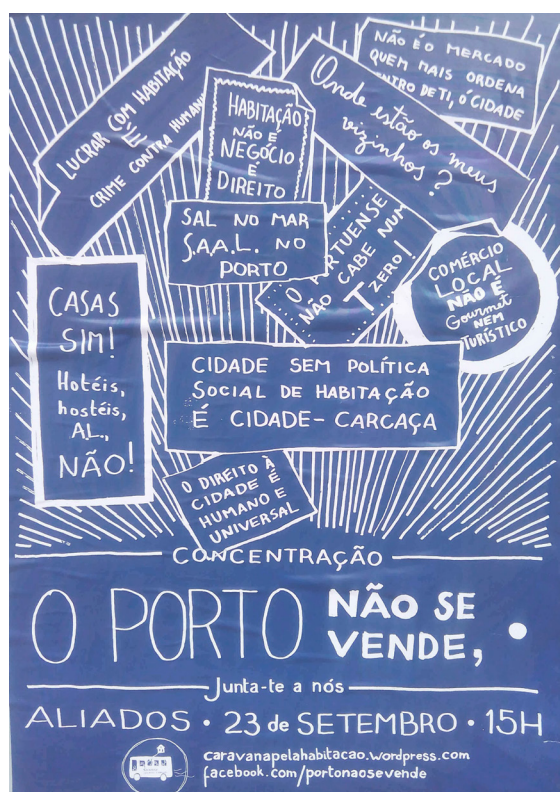 LUCRAR COM HABITAÇÃO
É
CRIME CONTRA HUMAN
HABITAÇÃO
NÃO É
NEGÓCIO
É
DIREITO
NÃO É O MERCADO
QUEM MAIS ORDENA
NTRO DE TI, Ó CIDADE
Onde estão os meus
vizinhos?
SAL NO MAR
S.A.A.L. NO
PORTO
O PORTUENSE
NÃO CABE NUM
T ZERO!
COMÉRCIO
LOCAL
NÃO É
Gourmet
NEM
TURÍSTICO
CASAS
SIM!
Hotéis,
hostéis,
AL.,
NÃO!
CIDADE SEM POLÍTICA
SOCIAL DE HABITAÇÃO
É CIDADE-CARCAÇA
O DIREITO À
CIDADE É
HUMANO E
UNIVERSAL
CONCENTRAÇÃO
O PORTO NÃO SE
VENDE,
Junta-te a nós
ALIADOS • 23 de SETEMBRO • 15H
caravanapelahabitacao.wordpress.com
facebook.com/portonaosevende